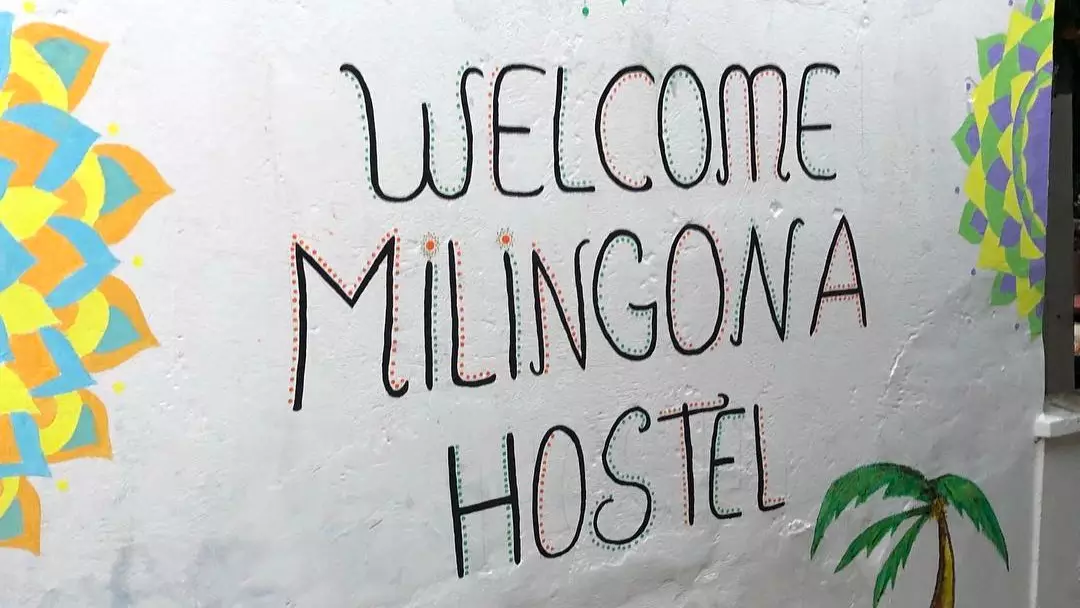 WELCOME
MiLiNGONA
HOSTEL